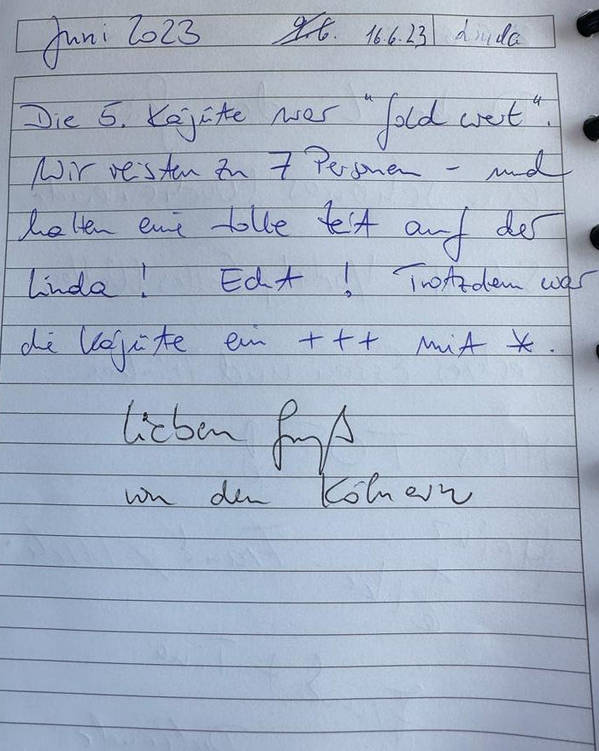 Juni 2023 9.6. 16.6.23 Linda
Die 5. Kajüte war "Gold wert".
Wir reisten zu 7 Personen - und
hatten eine tolle Zeit auf der
Linda! Echt! Trotzdem war
die Kajüte ein +++ mit *.
Lieben Gruß
von den Kölnern